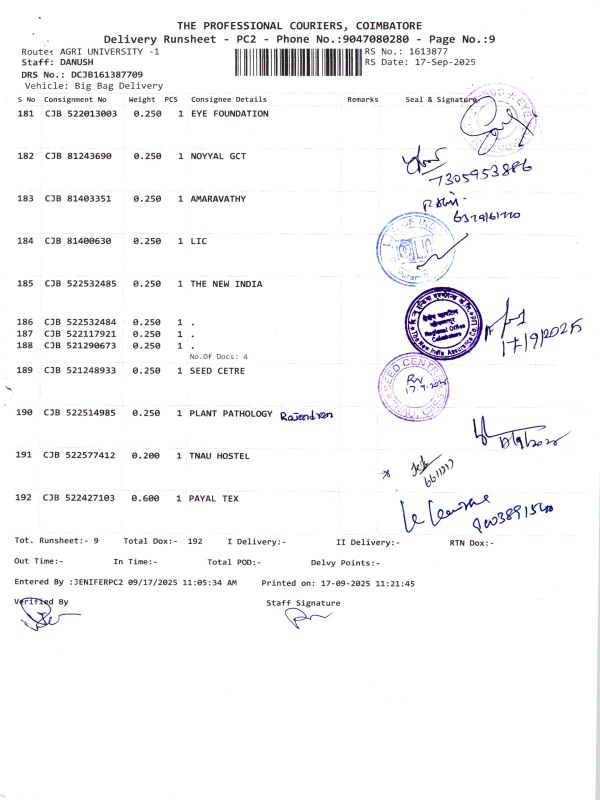 THE PROFESSIONAL COURIERS, COIMBATORE
Delivery Runsheet - PC2 - Phone No.:9047080280 - Page No.:9
Route: AGRI UNIVERSITY -1 RS No.: 1613877
Staff: DANUSH RS Date: 17-Sep-2025
DRS No.: DCJB161387709
Vehicle: Big Bag Delivery
S No Consignment No Weight PCS Consignee Details Remarks Seal & Signature
181 CJB 522013003 0.250 1 EYE FOUNDATION
182 CJB 81243690 0.250 1 NOYYAL GCT
7305953886
183 CJB 81403351 0.250 1 AMARAVATHY
184 CJB 81400630 0.250 1 LIC
LIC
185 CJB 522532485 0.250 1 THE NEW INDIA
186 CJB 522532484 0.250 1 .
187 CJB 522117921 0.250 1 .
188 CJB 521290673 0.250 1 .
Regional Office
Coimbatore
The New India Assurance Co
17/9/2025
No.Of Docs: 4
189 CJB 521248933 0.250 1 SEED CETRE
SEED CENTRE
190 CJB 522514985 0.250 1 PLANT PATHOLOGY Rajendran
191 CJB 522577412 0.200 1 TNAU HOSTEL
192 CJB 522427103 0.600 1 PAYAL TEX
Tot. Runsheet:- 9 Total Dox:- 192 I Delivery:- II Delivery:- RTN Dox:-
Out Time:- In Time:- Total POD:- Delvy Points:-
Entered By :JENIFERPC2 09/17/2025 11:05:34 AM Printed on: 17-09-2025 11:21:45
Verified By Staff Signature